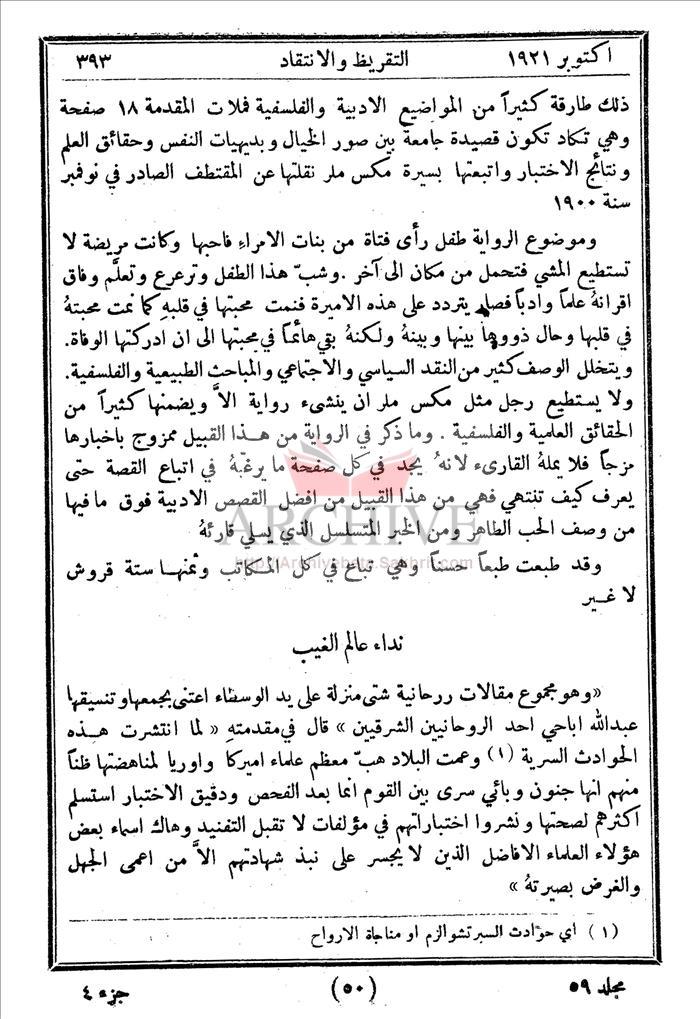 اكتوبر ١٩٢١ التقريظ والانتقاد ٣٩٣
ذلك طارقة كثيراً من المواضيع الادبية والفلسفية فملات المقدمة ١٨ صفحة
وهي تكاد تكون قصيدة جامعة بين صور الخيال وبديهيات النفس وحقائق العلم
ونتائج الاختبار واتبعتها بسيرة مكس ملر نقلتها عن المقتطف الصادر في نوفمبر
سنة ١٩٠٠
وموضوع الرواية طفل رأى فتاة من بنات الامراءِ فاحبها وكانت مريضة لا
تستطيع المشي فتحمل من مكان الى آخر . وشبّ هذا الطفل وترعرع وتعلَّم وفاق
اقرانهُ علماً وادباً فصار يتردد على هذه الاميرة فنمت محبتها في قلبهِ كما نمت محبتهُ
في قلبها وحال ذووها بينها وبينهُ ولكنهُ بقي هائماً في محبتها الى ان ادركتها الوفاة.
ويتخلل الوصف كثير من النقد السياسي والاجتماعي والمباحث الطبيعية والفلسفية.
ولا يستطيع رجل مثل مكس ملر ان ينشىء رواية الاَّ ويضمنها كثيراً من
الحقائق العلمية والفلسفية . وما ذكر في الرواية من هذا القبيل ممزوج باخبارها
مزجاً فلا يملهُ القارىء لانهُ يجد في كل صفحة ما يرغّبهُ في اتباع القصة حتى
يعرف كيف تنتهي فهي من هذا القبيل من افضل القصص الادبية فوق ما فيها
من وصف الحب الطاهر ومن الخبر المتسلسل الذي يسلي قارئهُ
ARCHIVE
http://Archivebeta.Sakhrit.com
وقد طبعت طبعاً حسناً وهي تباع في كل المكاتب وثمنها ستة قروش
لا غير
نداء عالم الغيب
«وهو مجموع مقالات ررحانية شتى منزلة على يد الوسطاء اعتنى بجمعها وتنسيقها
عبدالله اباحي احد الروحانيين الشرقيين » قال في مقدمتهِ « لما انتشرت هذه
الحوادث السرية (١) وعمت البلاد هبّ معظم علماء اميركا واوربا لمناهضتها ظناً
منهم انها جنون وبائي سرى بين القوم انما بعد الفحص ودقيق الاختبار استسلم
اكثرهم لصحتها ونشروا اختباراتهم في مؤلفات لا تقبل التفنيد وهاك اسماء بعض
هؤلاء العلماء الافاضل الذين لا يجسر على نبذ شهادتهم الاَّ من اعمى الجهل
والغرض بصيرتهُ »
(١) اي حوادث السبرتشوالزم او مناجاة الارواح
مجلد ٥٩ (٥٠) جزء ٤